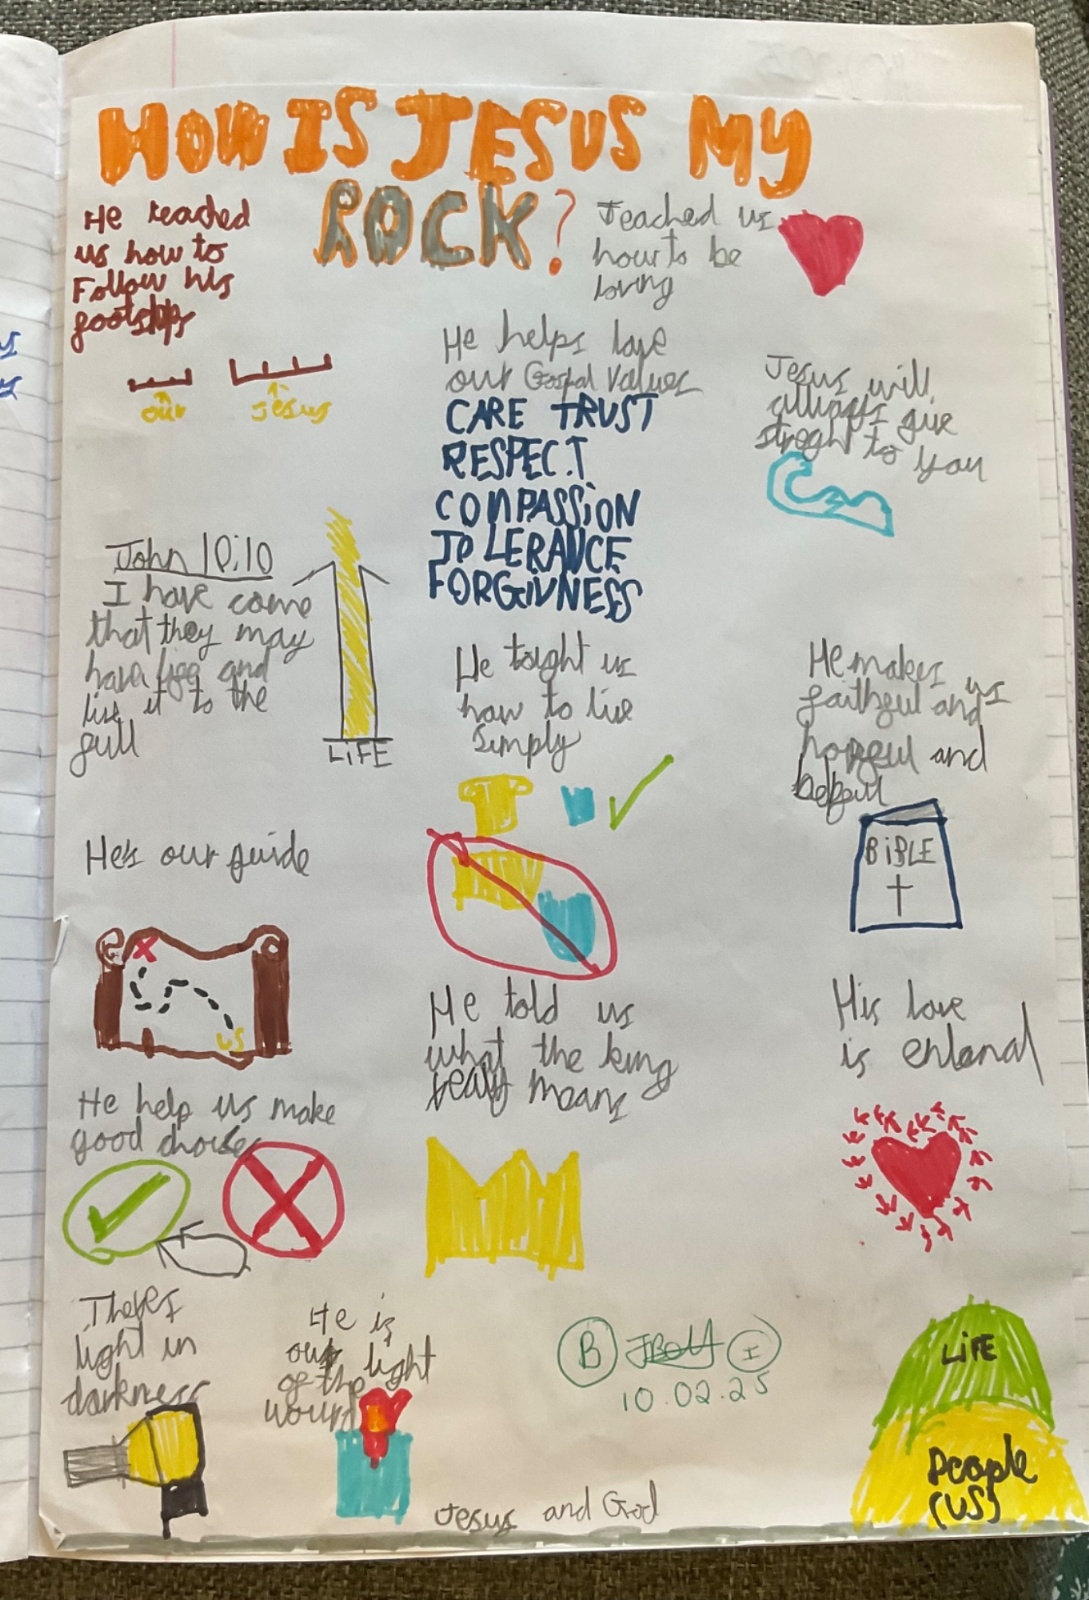 HOW IS JESUS MY
ROCK?
He teached
us how to
Follow his
footstps
our
Jesus
Teached us
how to be
loving
He helps love
our Gospal Values
CARE TRUST
RESPECT
COMPASSiON
TOLERANCE
FORGIVNESS
Jesus will
allways give
streght to you
John 10:10
I have come
that they may
have life and
live it to the
full
LiFE
He tought us
how to live
simply
He makes us
faithful and
hopeful and
helpful
BiBLE
He's our guide
us
He told us
what the king
really means
His love
is entenal
He help us make
good choices
Theres
light in
darkness
He is
our light
of the
B
I
10.02.25
LiFE
People
(US)
Jesus and God